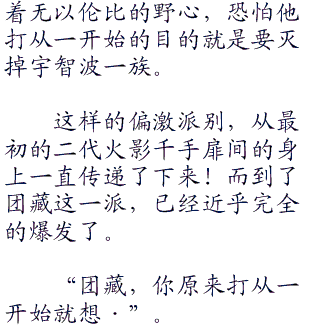 着无以伦比的野心，恐怕他
打从一开始的目的就是要灭
掉宇智波一族。
这样的偏激派别，从最
初的二代火影千手扉间的身
上一直传递了下来！而到了
团藏这一派，已经近乎完全
的爆发了。
“团藏，你原来打从一
开始就想·”。